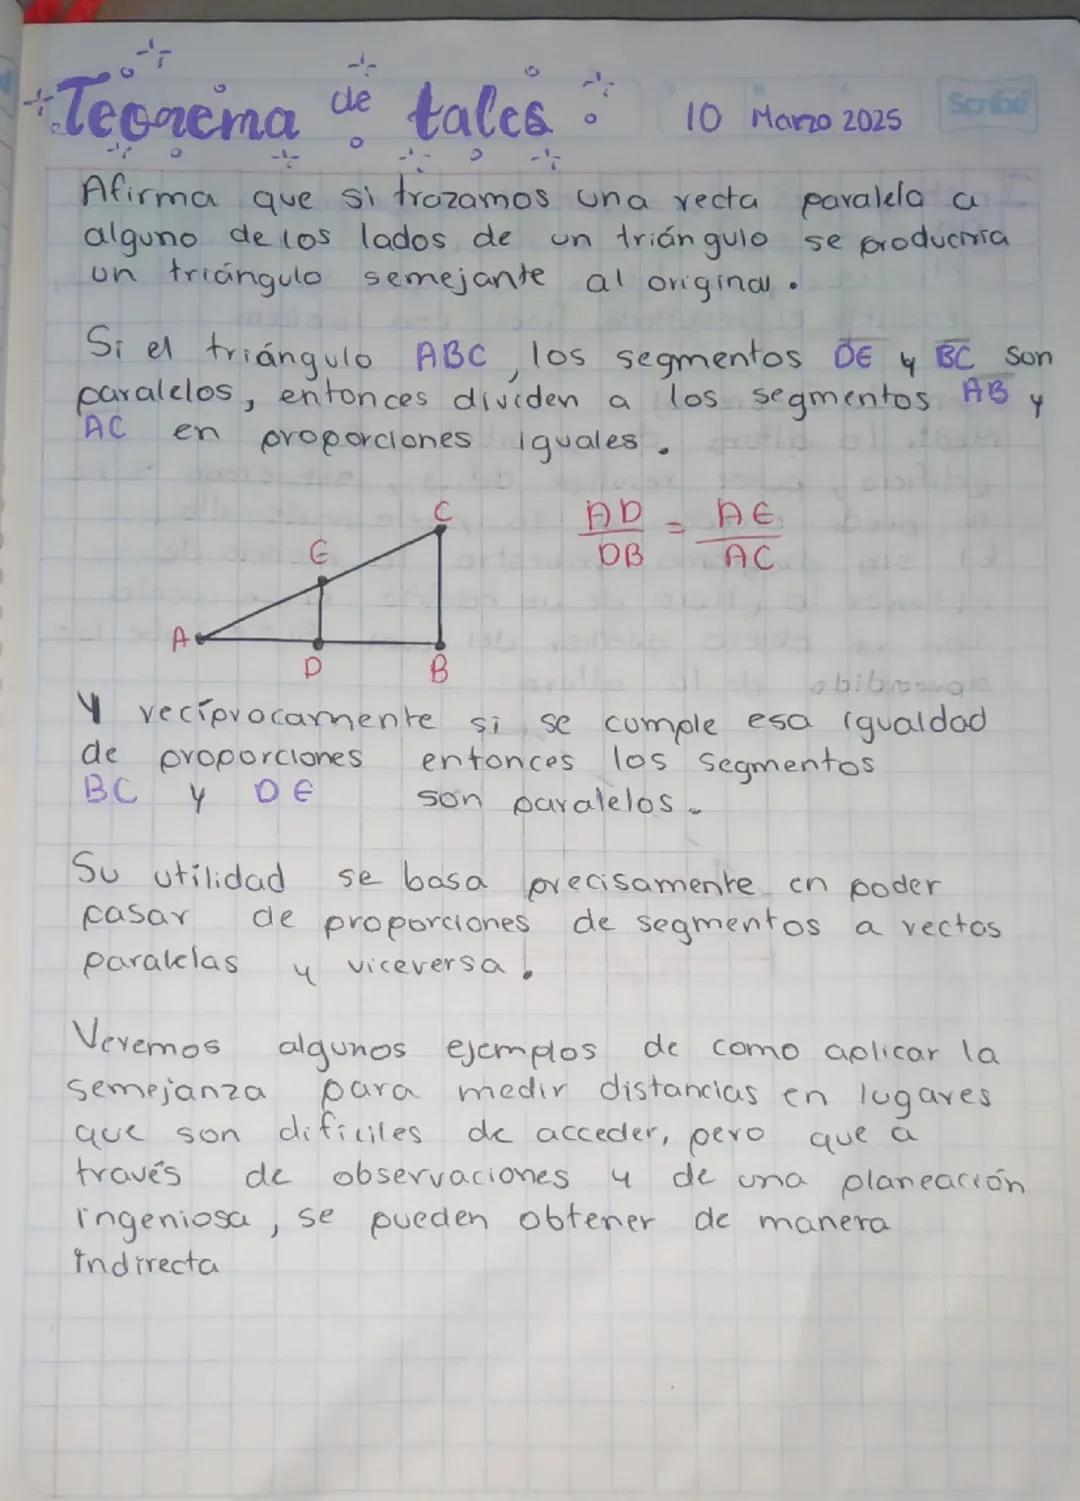 Teorema de tales 10 Marzo 2025 Scribe
Afirma que si trazamos una recta paralela a
alguno de los lados de un triángulo se produciría
un triángulo semejante al original.
Si el triángulo ABC, los segmentos DE y BC son
paralelos, entonces dividen a los segmentos AB y
AC en proporciones iguales.
AD/DB = AE/AC
C
E
A
D
B
Y recíprocamente si se cumple esa igualdad
de proporciones entonces los segmentos
BC y DE son paralelos.
Su utilidad se basa precisamente en poder
pasar de proporciones de segmentos a rectas
paralelas y viceversa.
Veremos algunos ejemplos de como aplicar la
semejanza para medir distancias en lugares
que son dificiles de acceder, pero que a
través de observaciones y de una planeación
ingeniosa, se pueden obtener de manera
indirecta